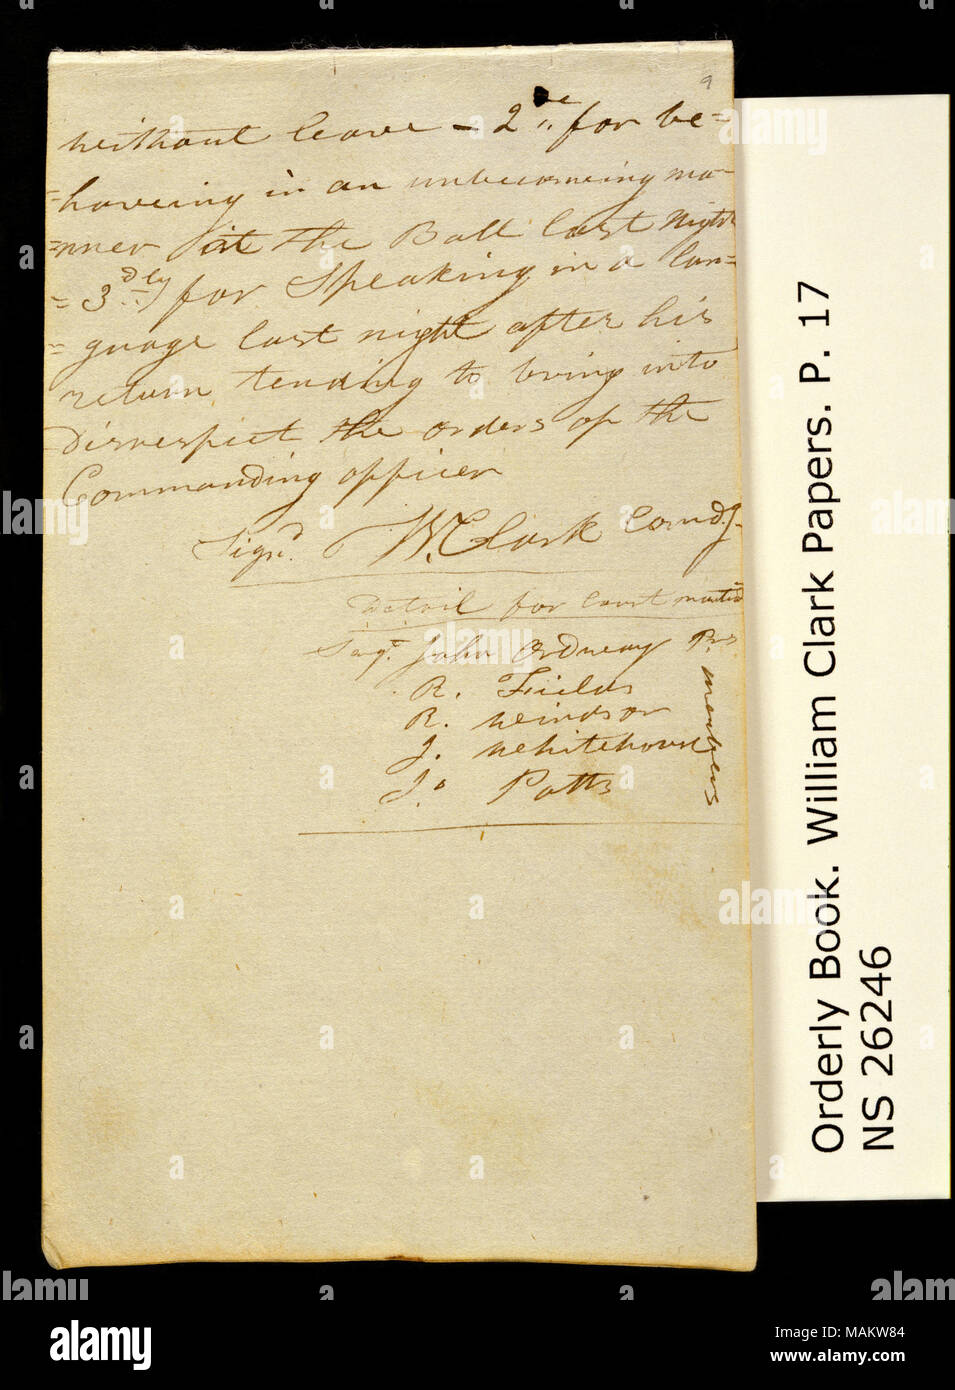 9
without leave – 2ly for be=
=haveing in an unbecomeing ma=
=nner at the Ball last night
= 3dly for Speaking in a lan=
= guage last night after his
return tending to bring into
Disrespect the orders of the
Commanding officer
Signd. W. Clark Comdg.
Detail for Court martial
Sergt. John Ordway Prs.
R. Fields
R. Windsor
J. Whitehouse
Jo. Potts
members
Orderly Book. William Clark Papers. P. 17
NS 26246
alamy
Image ID: MAKW84
www.alamy.com